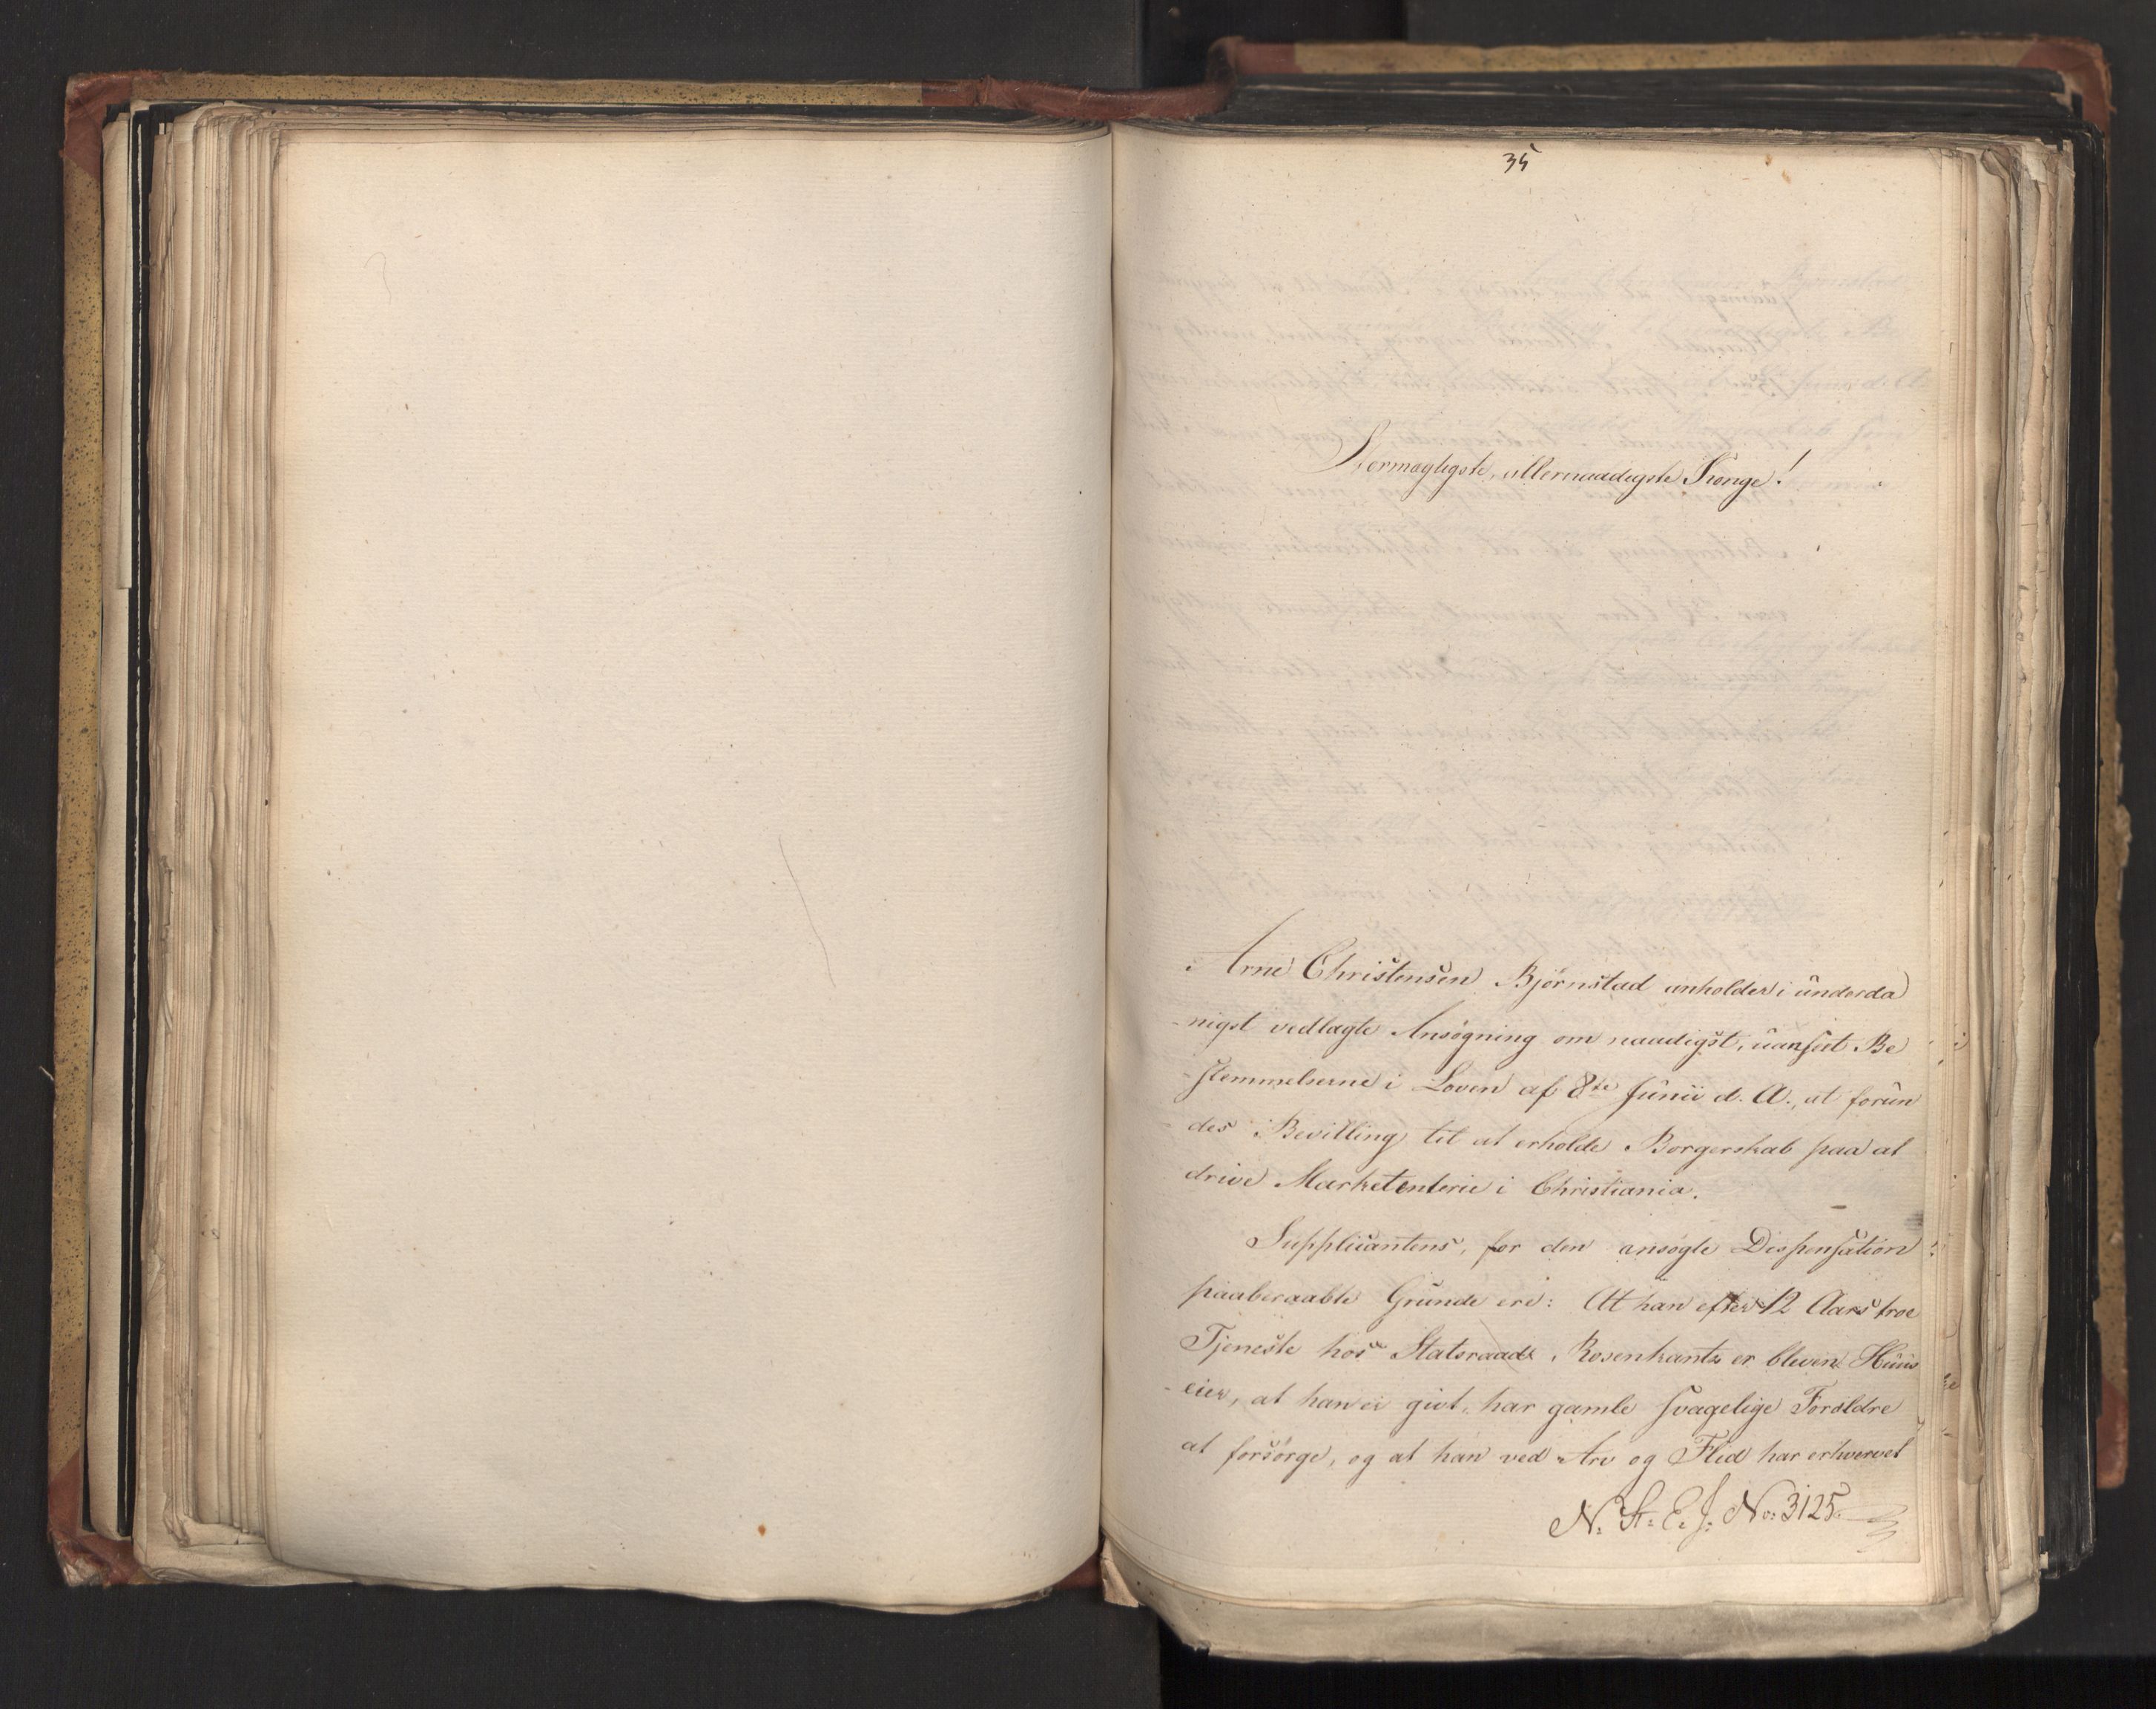 35
Stormægtigste, allernaadigste Konge!
Arne Christensen Bjørnstad anholder i underda
-nigst vedlagte Ansøgning om naadigst, uanseet Be
-stemmelserne i Loven af 8de Junii d. A., at forun
des Bevilling til at erholde Borgerskab paa at
drive Marketenterie i Christiania.
Supplicantens, for den ansøgte Dispensation
paaberaabte Grunde ere: At han efter 12 Aars troe
Tjeneste hos Statsraad Rosenkrantz er bleven Huus
-eier, at han er givt, har gamle svagelige Forældre
at forsørge, og at han ved Arv og Flid har erhvervet
N. St: E. J: No: 3125.